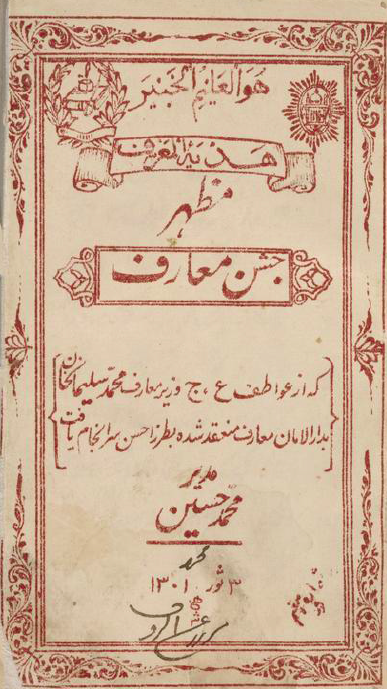 هو العلیم الخبیر
هدیة المعارف
مظهر
جشن معارف
که از عواطف ع ، ج وزیر معارف محمد سلیمانخان
بدارالامان معارف منعقد شده بطرز احسن سرانجام یافت
مدیر
محمد حسین
۳ ثور ۱۳۰۱